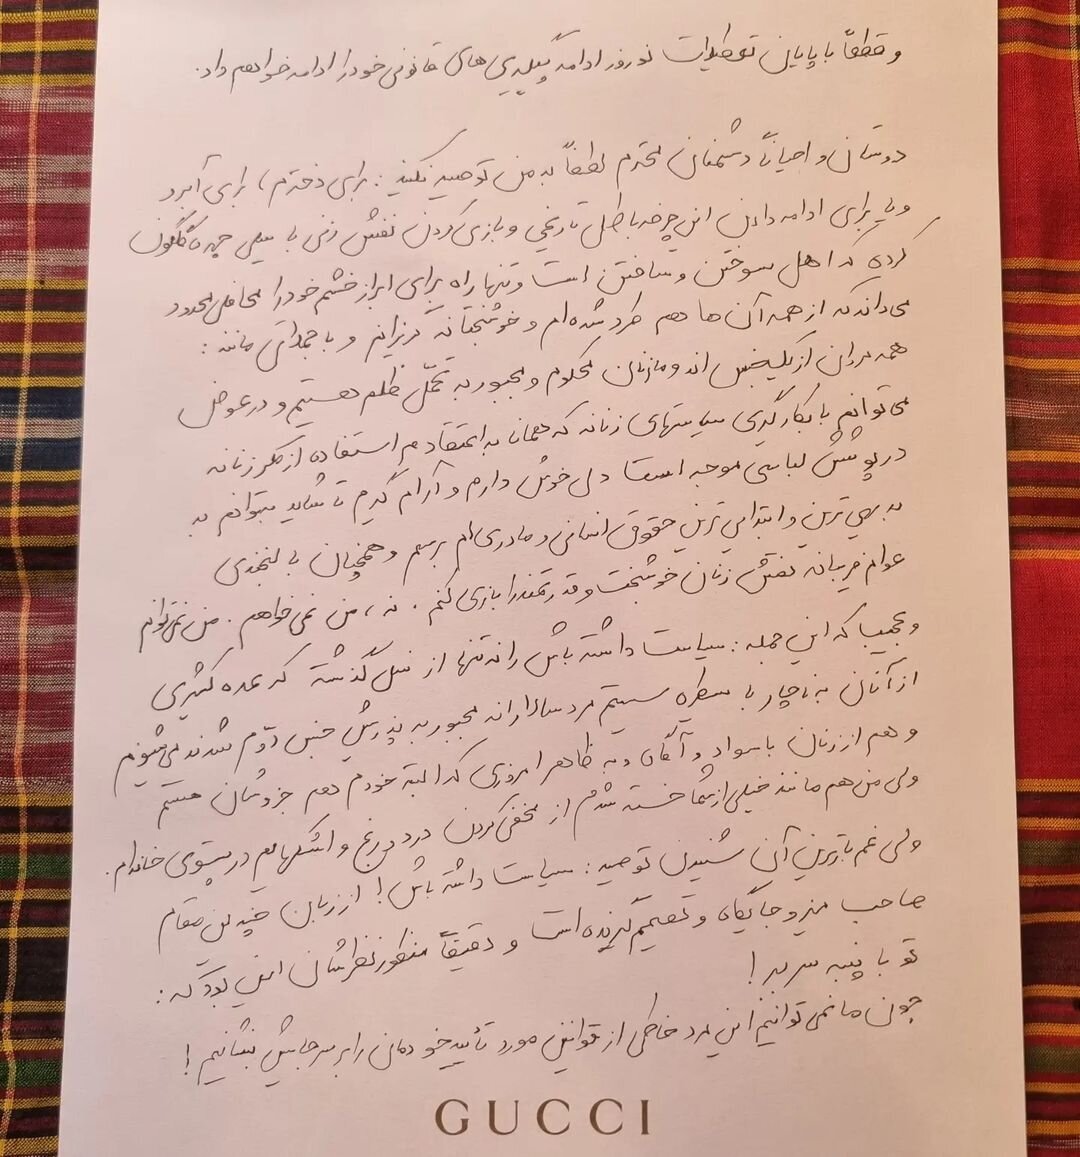 و قطعاً با پایان تعطیلات نوروز ادامه پیگیری های قانونی خود را ادامه خواهم داد.
دوستان و احیاناً دشمنان محترم لطفاً به من توصیه نکنید: برای دخترم، برای آبرو
و یا برای ادامه دادن این چرخه باطل تاریخی و بازی کردن نقش زنی با سیلی چهره گلگون
کرده که اهل سوختن و ساختن است و تنها راه برای ابراز خشم خود را محافل محدود
می داند که از همه آن ها هم طرد شده ام و خوشبختانه گریزانم و با جملاتی مانند:
همه مردان از یک جنس اند و ما زنان محکوم و مجبور به تحمّل ظلم هستیم و در عوض
می توانم با بکارگیری سیاستهای زنانه که همانا به اعتقادم استفاده از مکر زنانه
در پوشش لباسی موجه است دل خوش دارم و آرام گیرم تا شاید بتوانم به
بدیهی ترین و ابتدایی ترین حقوق انسانی و مادری ام برسم و همچنان با لبخندی
عوام فریبانه نقش زنان خوشبخت و قدرتمند را بازی کنم. نه، من نمی خواهم. من نمی توانم
و عجیبا که این جمله: سیاست داشته باش را نه تنها از نسل گذشته که عده کثیری
از آنان به ناچار با سیطره سیستم مردسالارانه مجبور به پذیرش جنس دوّم شدند می شنوم
و هم از زنان با سواد و آگاه و به ظاهر امروزی که البته خودم هم جزوشان هستم
ولی من هم مانند خیلی از شما خسته شدم از مخفی کردن درد و رنج و اشکهایم در پستوی خانه ام.
ولی غم بارترین آن شنیدن توصیه: سیاست داشته باش! از زبان چندین مقام
صاحب میز و جایگاه و تصمیم گیرنده است و دقیقاً منظور نظرشان این بود که:
تو با پنبه سر ببر!
چون ما نمی توانیم این مرد خاطی از قوانین مورد تأیید خودمان را بر سر جایش بنشانیم!
GUCCI